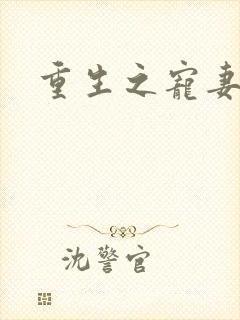 重生之寵妻
沈警官